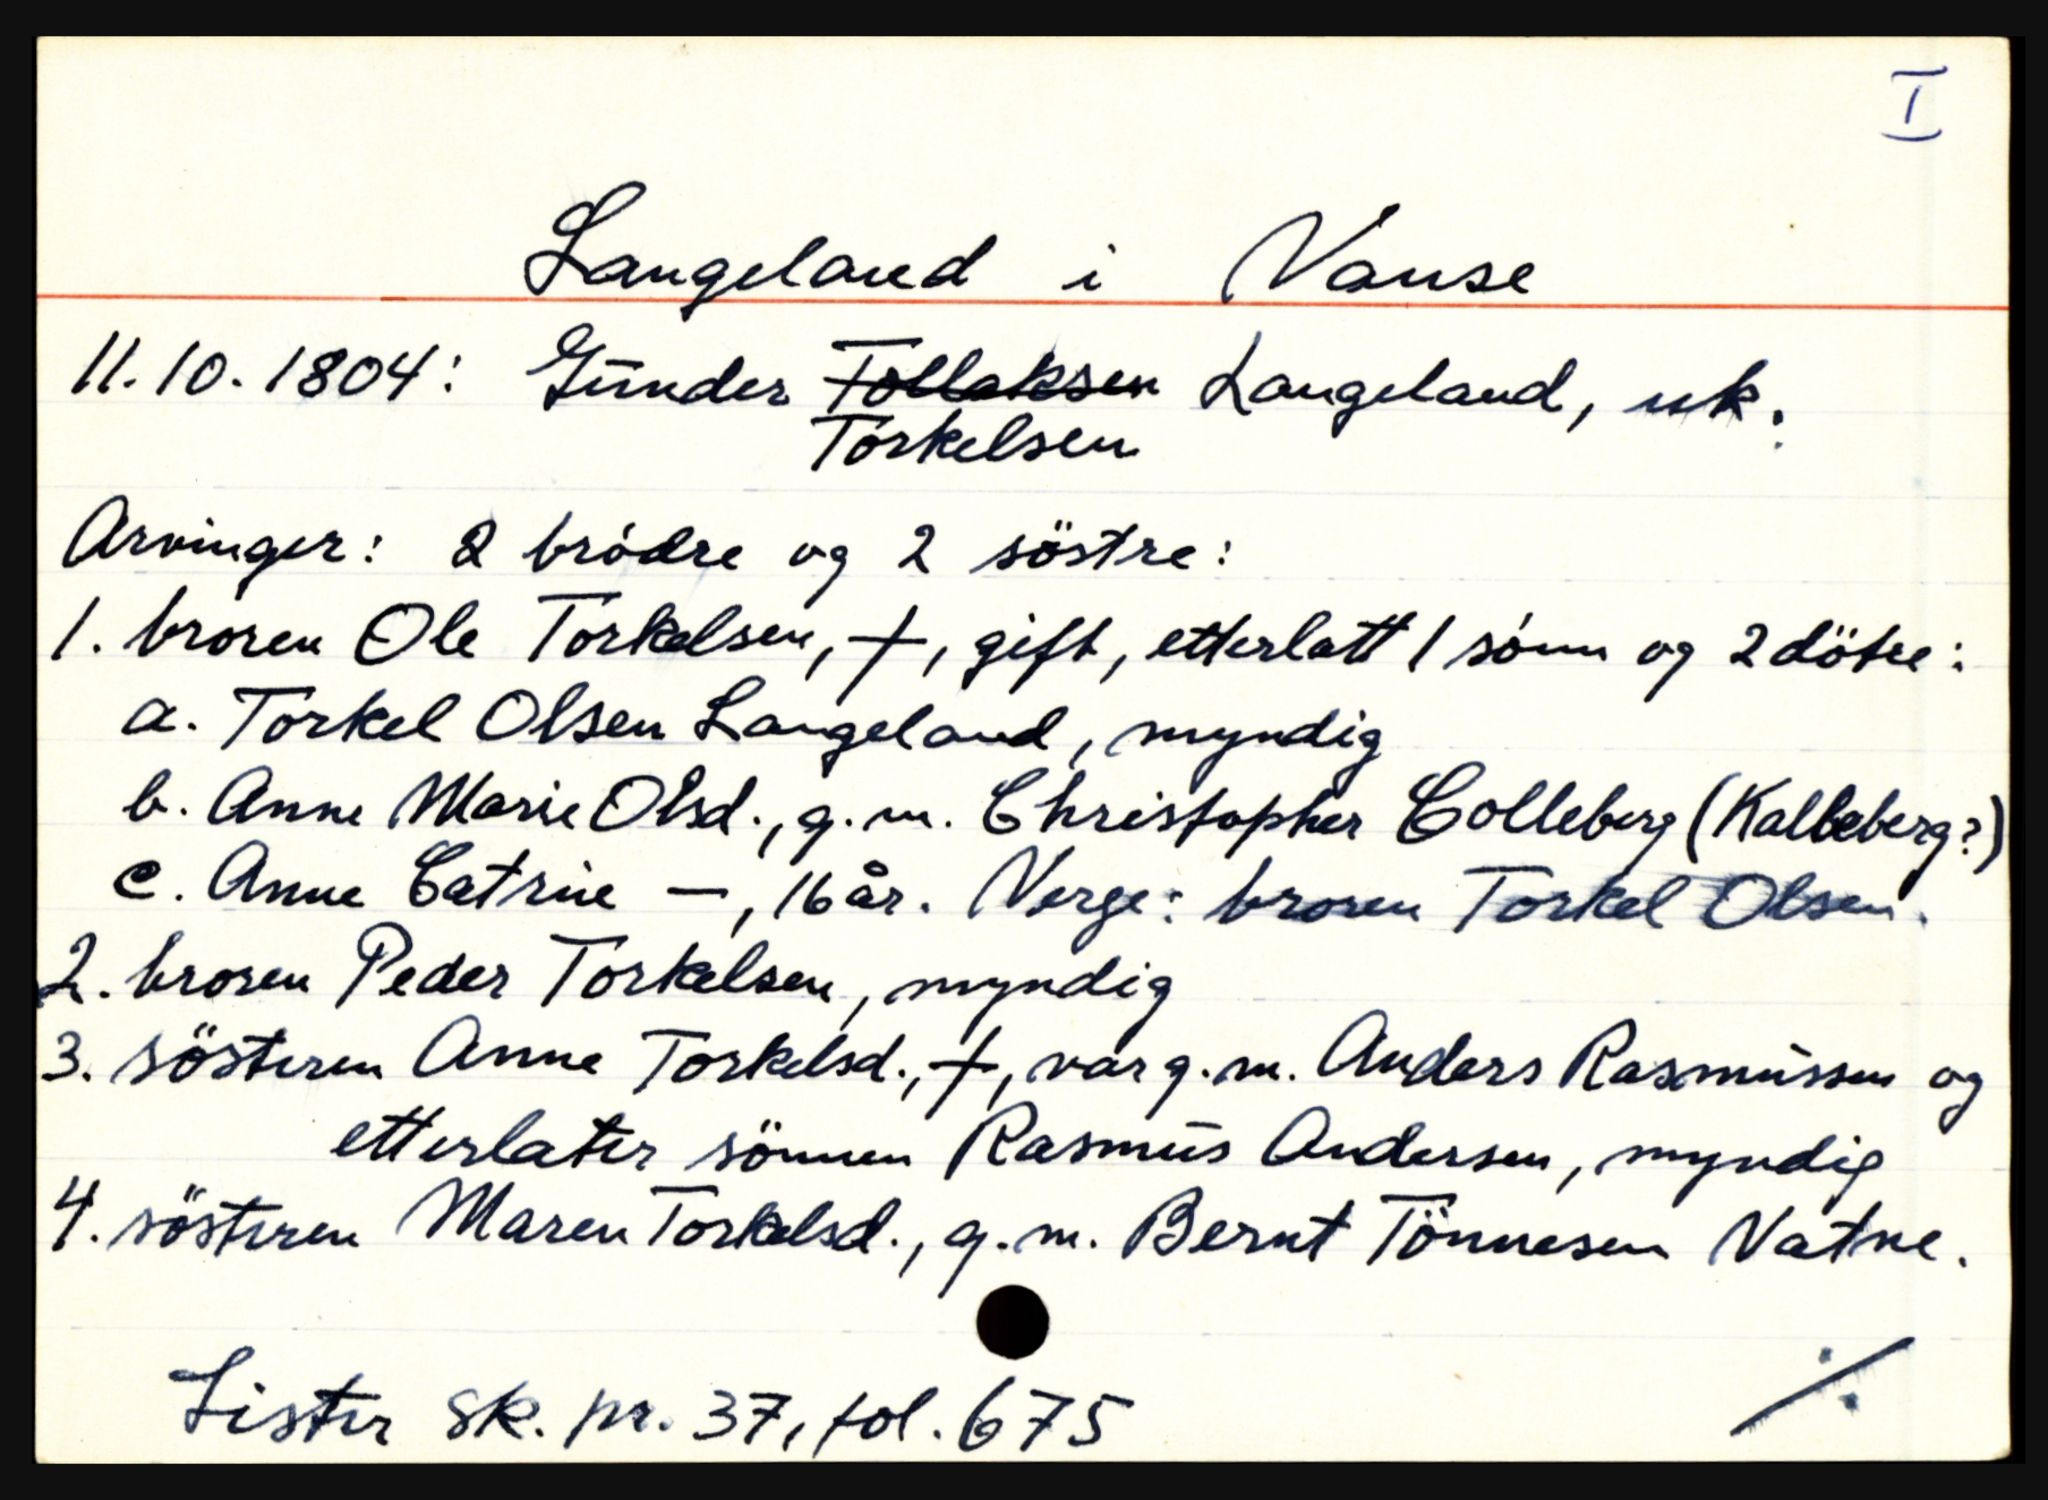 I
Langeland i Vanse
11.10.1804: Gunder Tollaksen Langeland, uk.
Torkelsen
Arvinger: 2 brödre og 2 söstre:
1. broren Ole Torkelsen, †, gift, etterlatt 1 sönn og 2 dötre:
a. Torkel Olsen Langeland, myndig
b. Anne Marie Olsd., g.m. Christopher Colleberg (Kalleberg?)
c. Anne Catrine —, 16 år. Verge: broren Torkel Olsen.
2. broren Peder Torkelsen, myndig
3. sösteren Anne Torkelsd., †, var g.m. Anders Rasmussen og
etterlater sönnen Rasmus Andersen, myndig
4. sösteren Maren Torkelsd., g.m. Bernt Tönnesen Vatne.
Lister sk. pr. 37, fol. 675
./.